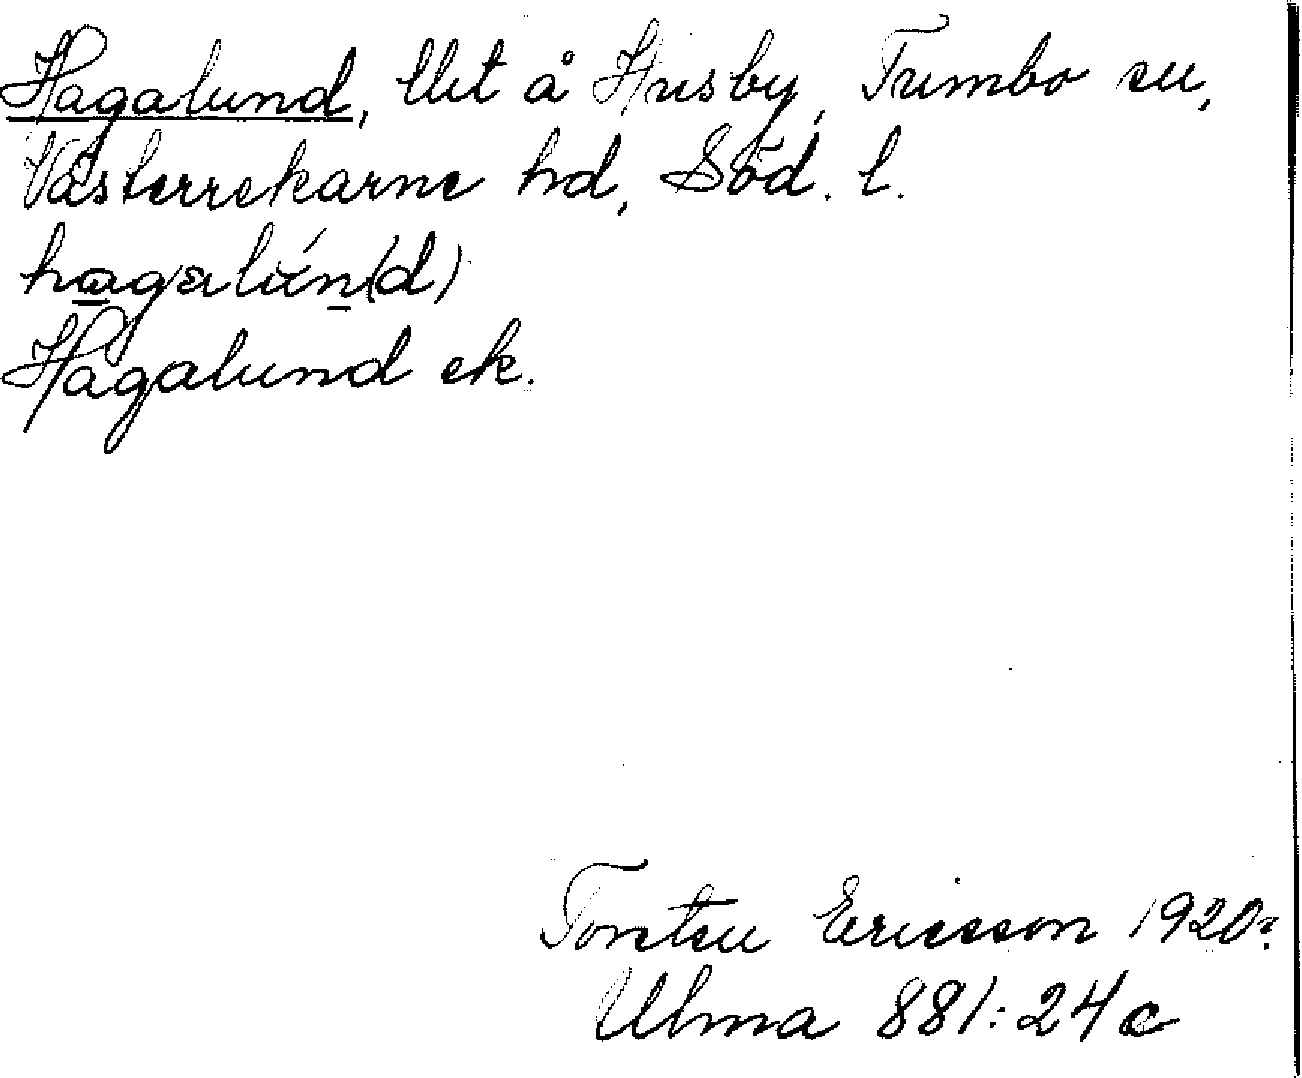 Hagalund, Utt å Husby, Tumbo sn,
Västerrekarne hd, Söd. l.
Hagalund ek.
Torsten Ericsson 1920?
Ulma 881:24c